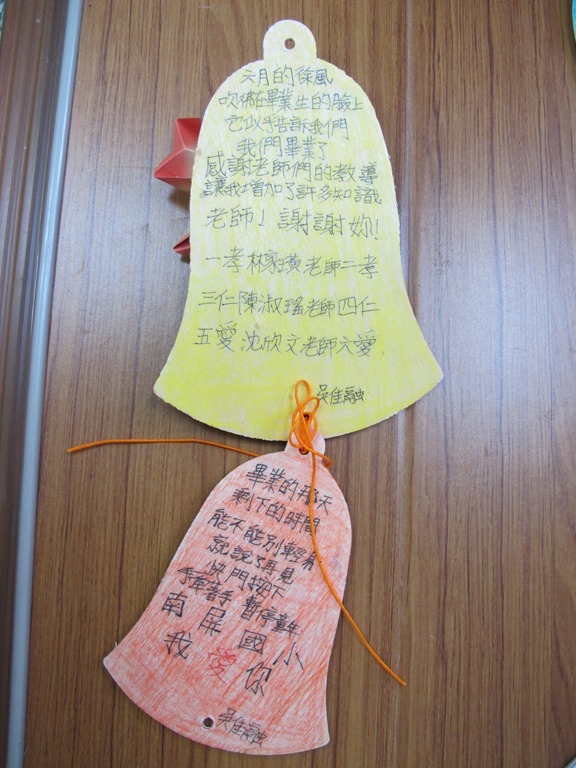 六月的徐風
吹拂在畢業生的臉上
它似乎告訴我們
我們畢業了
感謝老師們的教導
讓我增加了許多知識
老師！謝謝妳！
一孝林家璜老師二孝
三仁陳淑瑤老師四仁
五愛沈欣文老師六愛
吳隹融
畢業的那天
剩下的時間
能不能別輕易
就說了再見
快門按下
手牽著手 暫停童年
南屏國小
我愛你
吳隹融